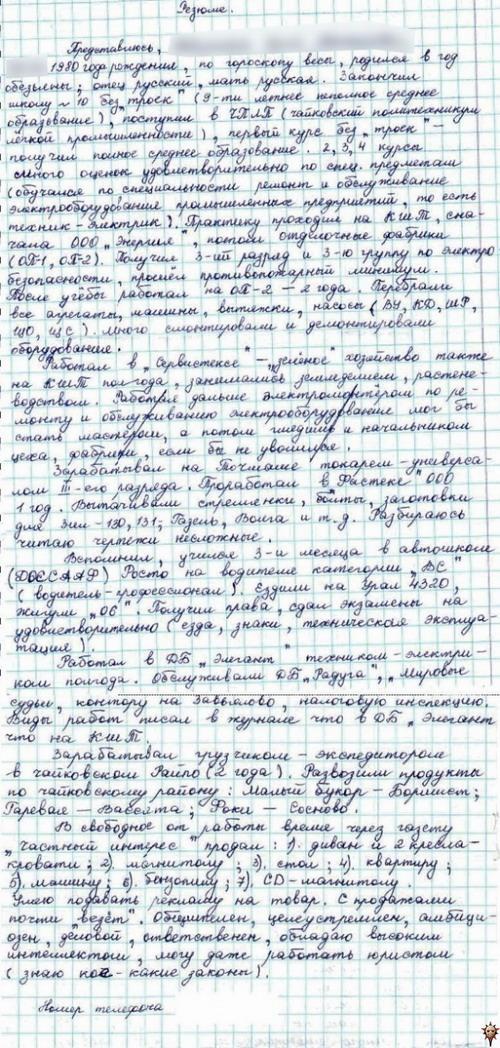 Резюме.
Представлюсь,
1980 года рождения, по гороскопу весы, родился в год
обезьяны; отец русский, мать русская. Закончил
школу № 10 без „троек" (9-ти летнее неполное среднее
образование), поступил в ЧПЛП (Чайковский политехникум
лёгкой промышленности), первый курс без „троек" —
получил полное среднее образование. 2, 3, 4 курсы
много оценок удовлетворительно по спец. предметам
(обучался по специальности ремонт и обслуживание
электрооборудование промышленных предприятий, то есть
техник-электрик). Практику проходил на КШТ, сна-
чала ООО „Энергия", потом отделочные фабрики
(ОП-1, ОП-2). Получил 3-ий разряд и 3-ю группу по электро
безопасности, прошёл противопожарный минимум.
После учёбы работал на ОП-2 — 2 года. Перебрали
все агрегаты, машины, вытяжки, насосы (ВУ, КД, ШР,
ШО, ЩС). Много смонтировали и демонтировали
оборудования.
Работал в „Сервистексе" — „зелёное" хозяйство также
на КШТ полгода, занимались земледелием, растене-
водством. Работая дальше электромонтёром по ре-
монту и обслуживанию электрооборудование мог бы
стать мастером, а потом глядишь и начальником
цеха, фабрики, если бы не уволили.
Зарабатывал на Точмаше токарем-универса-
лом III-его разряда. Проработал в „Растеке" ООО
1 год. Вытачивали стремянки, болты, заготовки
для Зил-130, 131; Газель, Волга и т.д. Разбираюсь
читаю чертежи несложные.
Вспомнил, учился 3-и месяца в автошколе
(ДОССААФ) Росто на водителе категории „ВС"
(водитель-профессионал). Ездили на Урал 4320,
жигули „06". Получил права, сдал экзамены на
удовлетворительно (езда, знаки, техническая эксплуа-
тация).
Работал в ДБ „Элегант" техником-электри-
ком полгода. Обслуживали ДБ „Радуга", „Мировые
судьи, контору на Завьялово, налоговую инспекцию.
Виды работ писал в журнале что в ДБ „Элегант
что на КШТ.
Зарабатывал грузчиком-экспедитором
в чайковском Райпо (2 года). Развозили продукты
по чайковскому району: Малый букор — Бормист;
Гаревая — Вассята; Фоки — Сосново.
В свободное от работы время через газету
„частный интерес" продал: 1). диван и 2 кресла-
кровати; 2). магнитолу; 3). стол; 4). квартиру;
5). машину; 6). бензопилу; 7). CD-магнитолу.
Умею подавать рекламу на товар. С продажами
почти „везёт". Общителен, целеустремлен, амбици-
озен, деловой, ответственен, обладаю высоким
интеллектом, могу даже работать юристом
(знаю кое-какие законы).
Номер телефона